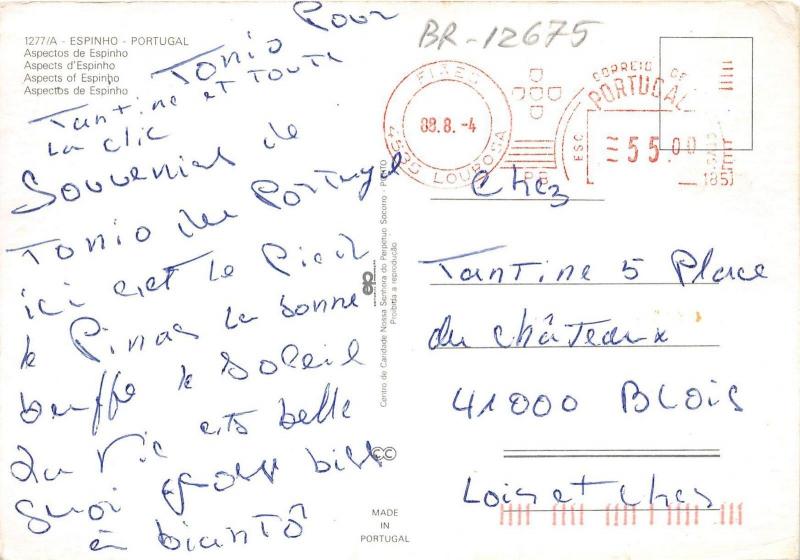 1277/A - ESPINHO - PORTUGAL
Aspectos de Espinho
Aspects d'Espinho
Aspects of Espinho
Aspectos de Espinho
Pour
Tonio
Tantine et TOUTE
La clic
Souvenirs de
Tonio du Portugal
ici cet le Pied
le Pinar la bonne
bouffe le Soleil
La Vie ets belle
Quoi grosse bise
à biantô
Centro de Caridade Nossa Senhora do Perpétuo Socorro - PORTO
Proibida a reprodução
ep
CC
MADE
IN
PORTUGAL
BR-12675
FIXES
88.8.-4
4535 LOUROSA
CORREIO DE
PORTUGAL
ESC
55.00
P.B
Chez
Tantine 5 Place
du châteaux
41000 BLOIS
Loir et cher